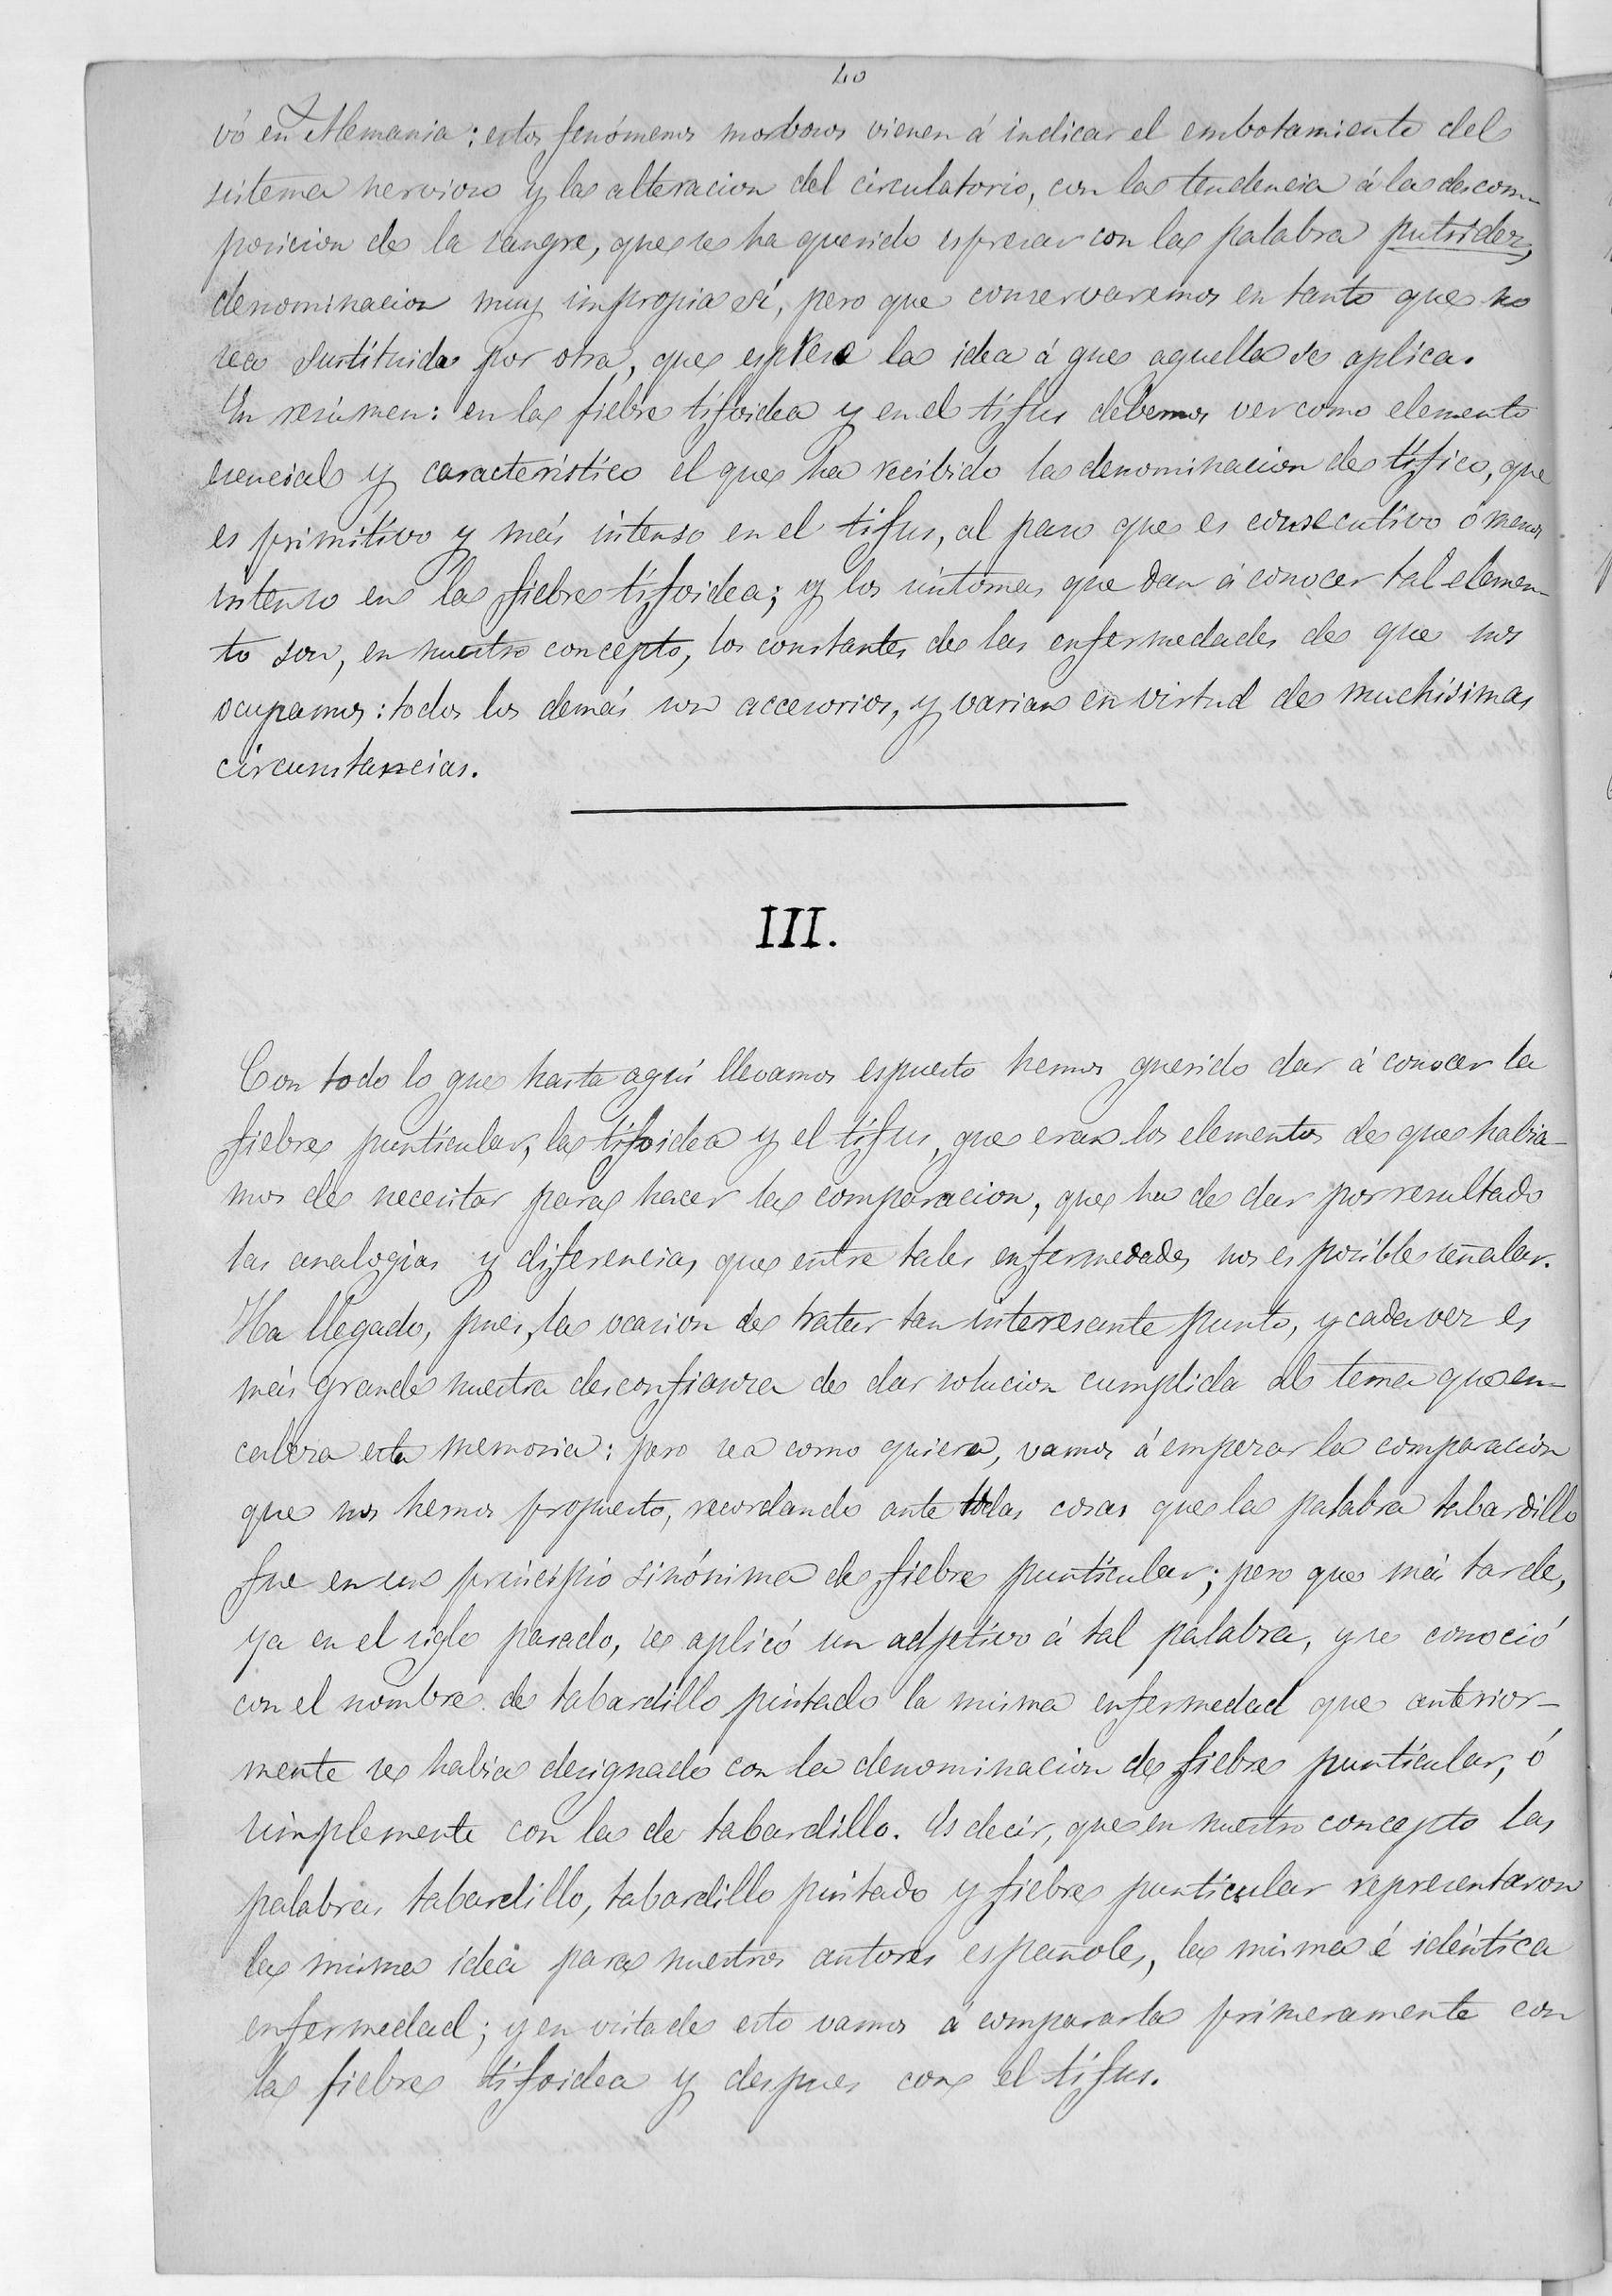 40
vó en Alemania: estos fenómenos morbosos vienen á indicar el embotamiento del
sistema nervioso y la alteracion del circulatorio, con la tendencia á la descom-
posicion de la sangre, que se ha querido espresar con la palabra putridez,
denominacion muy impropia sí, pero que conservaremos en tanto que no
sea sustituida por otra, que esprese la idea á que aquella se aplica.
En resúmen: en la fiebre tifoidea y en el tifus debemos ver como elemento
esencial y característico el que ha recibido la denominacion de tífico, que
es primitivo y más intenso en el tifus, al paso que es consecutivo ó menos
intenso en la fiebre tifoidea; y los sintomas que dan á conocer tal elemen-
to son, en nuestro concepto, los constantes de las enfermedades de que nos
ocupamos: todos los demás son accesorios, y varian en virtud de muchísimas
circunstancias.
III.
Con todo lo que hasta aquí llevamos espuesto hemos querido dar á conocer la
fiebre puntícular, la tifoidea y el tifus, que eran los elementos de que habia-
mos de necesitar para hacer la comparacion, que ha de dar por resultado
las analogías y diferencias que entre tales enfermedades nos es posible señalar.
Ha llegado, pues, la ocasion de tratar tan interesante punto, y cada vez es
más grande nuestra desconfianza de dar solucion cumplida al tema que en-
cabeza esta memoria: pero sea como quiera, vamos á empezar la comparacion
que nos hemos propuesto, recordando ante todas cosas que la palabra tabardillo
fue en un principio sinónima de fiebre puntícular; pero que más tarde,
ya en el siglo pasado, se aplicó un adjetivo á tal palabra, y se conoció
con el nombre de tabardillo pintado la misma enfermedad que anterior-
mente se habia designado con la denominacion de fiebre puntícular, ó
simplemente con la de tabardillo. Es decir, que en nuestro concepto las
palabras tabardillo, tabardillo pintado y fiebre puntícular representaron
la misma idea para nuestros autores españoles, la misma é idéntica
enfermedad; y en vista de esto vamos á compararla primeramente con
la fiebre tifoidea y despues con el tifus.